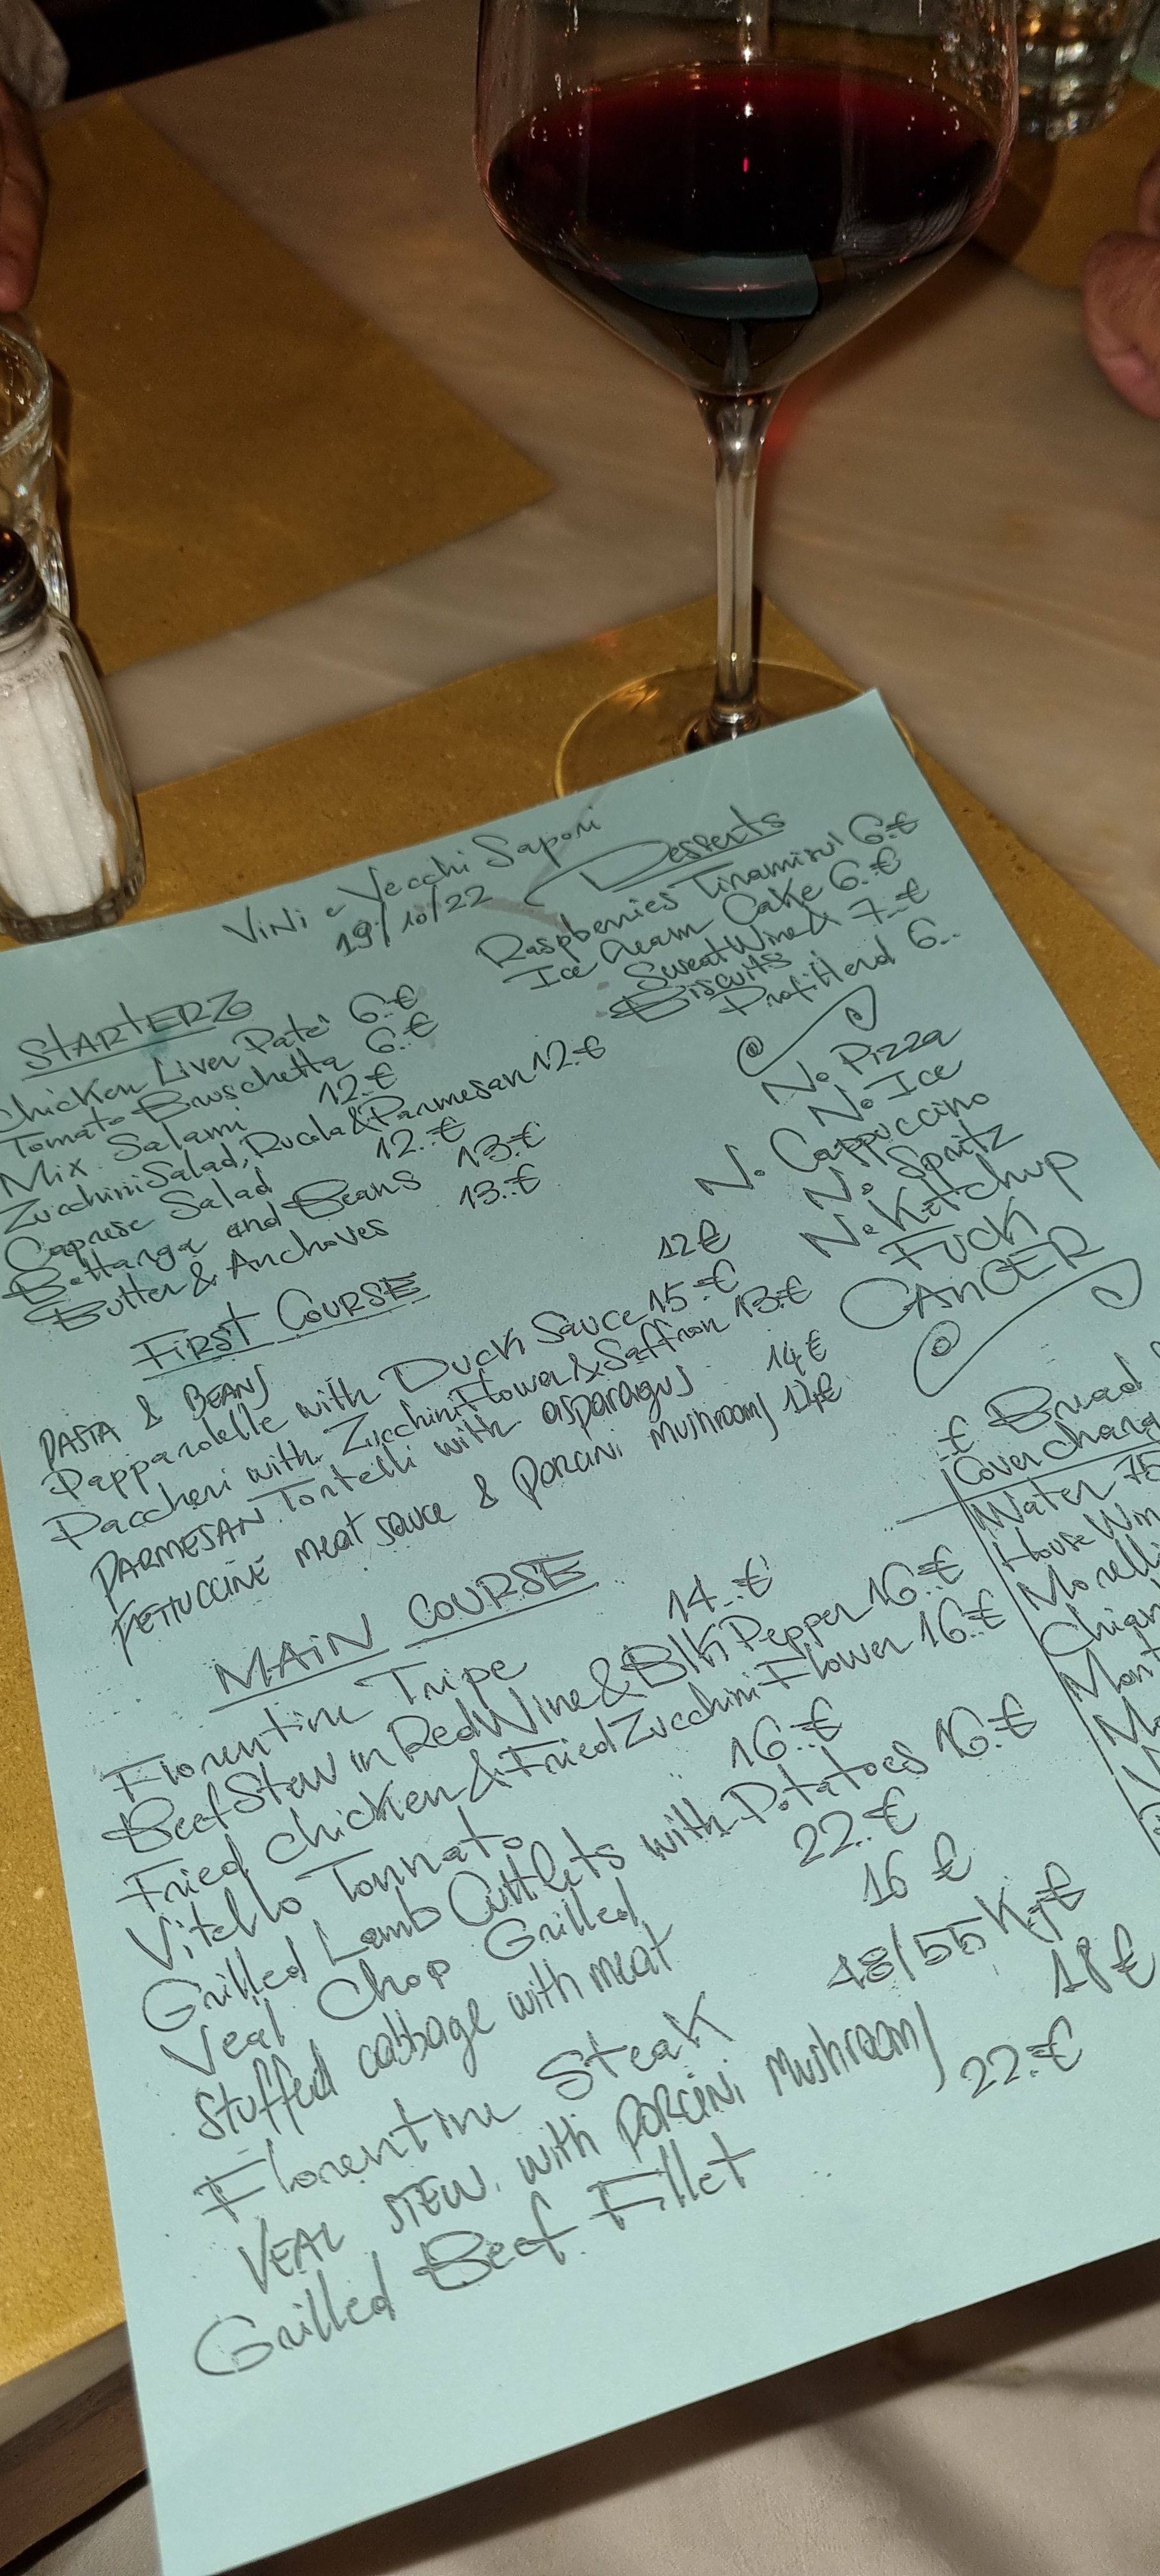 Vini e Vecchi Sapori
19/10/22
STARTERZ
Chicken Liver Paté 6..€
Tomato Bruschetta 6..€
Mix Salami 12..€
Zucchini Salad, Rucola & Parmesan 12..€
Caprese Salad 12..€
Bottarga and Beans 13..€
Butter & Anchoves 13..€
FIRST COURSE
PASTA & BEANS 12€
Pappardelle with Duck Sauce 15..€
Paccheri with Zucchini Flower & Saffron 13..€
PARMESAN Tortelli with asparagus 14€
FETTUCCINE meat sauce & PORCINI mushrooms 14€
MAIN COURSE
Florentine Tripe 14..€
Beef Stew in Red Wine & Blk Pepper 16..€
Fried Chicken & Fried Zucchini Flower 16..€
Vitello Tonnato 16..€
Grilled Lamb Cuttlets with Potatoes 16..€
Veal Chop Grilled 22..€
Stuffed cabbage with meat 16 €
Florentine Steak 48/55 Kg€
VEAL STEW with PORCINI mushrooms 18€
Grilled Beef Fillet 22..€
Desserts
Raspberries Tiramisu' 6..€
Ice Cream Cake 6..€
Sweat Wine & 7..€
Biscuits
6..
No Pizza
No Ice
No Cappuccino
No Spritz
No Ketchup
FUCK
CANCER
€ Bread
Cover Charg
Water 75
House Win
Morelli
Chian
Mont